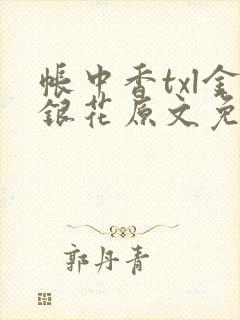 帳中香txl金
銀花原文免
郭丹青